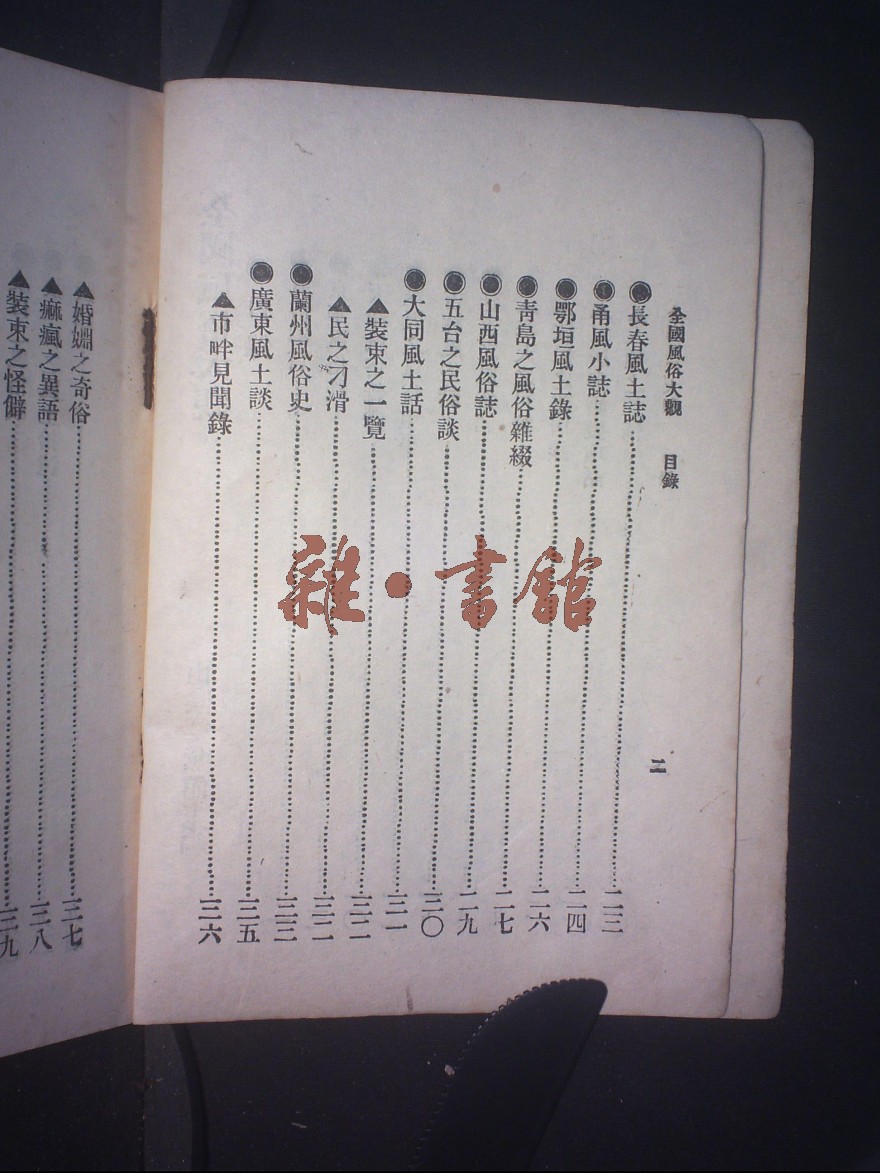 全國風俗大觀 目錄 二
●長春風土誌 二三
●甬風小誌 二四
●鄂垣風土錄 二六
●靑島之風俗雜綴 二七
●山西風俗誌 二九
●五台之民俗談 三〇
●大同風土話 三一
▲裝束之一覽 三二
▲民之刁滑 三二
●蘭州風俗史 三三
●廣東風土談 三五
▲市畔見聞錄 三六
▲婚姻之奇俗 三七
▲痲瘋之異語 三八
▲裝束之怪僻 三九
雜·書館